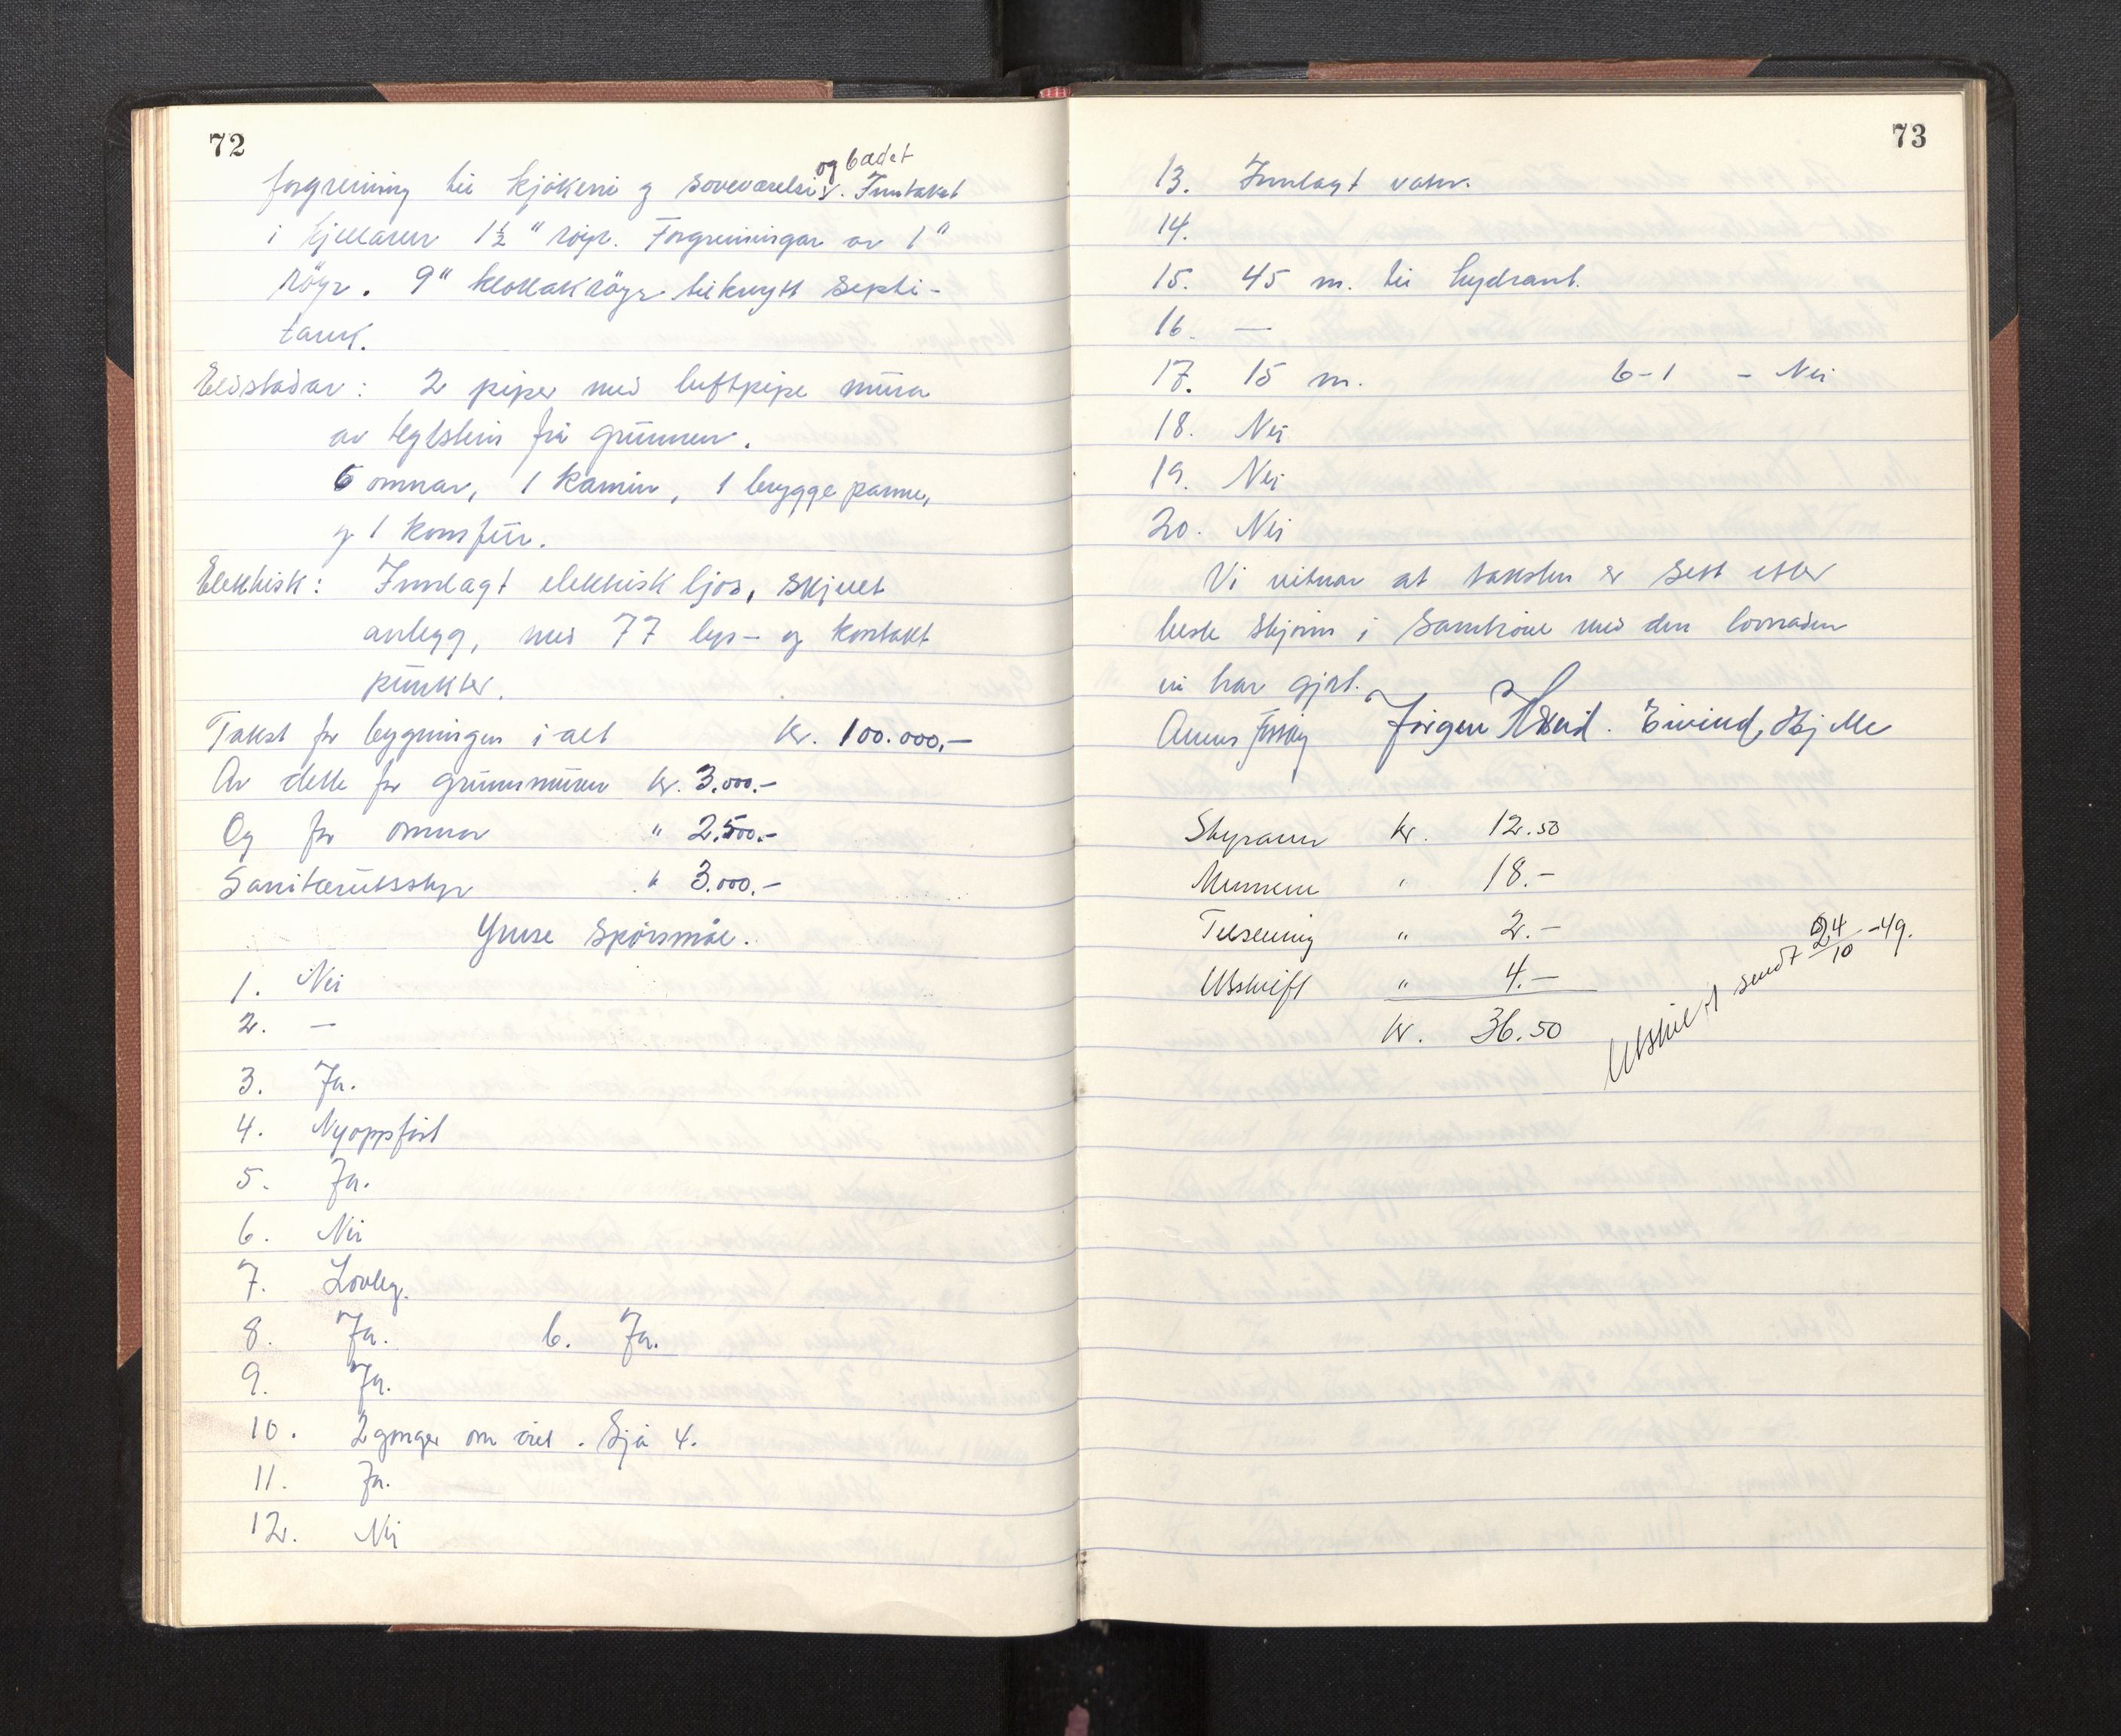 72
og badet
forgreining til kjøkeni og soveværelsi. Inntaket
i kjellaren 1½" röyr. Forgreiningar av 1"
röyr. 9" kloakkröyr tilknytt septi-
tank.
Eldstadar: 2 piper med luftpipe mura
av teglstein frå grunnen.
6 omnar, 1 kamin, 1 bryggepanne,
og 1 komfür.
Elektrisk: Innlagt elektrisk ljos, skjult
anlegg, med 77 lys- og kontakt
punkter.
Takst for bygningen i alt kr. 100.000,-
Av dette for grunnmuren kr. 3.000.-
Og for omnar " 2.500.-
Sanitærutsstyr " 3.000.-
Ymse spörsmål.
1. Nei
2. —
3. Ja.
4. Nyoppfört
5. Ja.
6. Nei
7. Lovleg.
8. Ja. b. Ja.
9. Ja.
10. 2 gonger om året. Sjå 4.
11. Ja.
12. Nei
73
13. Innlagt vatn.
14.
15. 45 m. til hydrant.
16. —
17. 15 m. 6-1 - Nei
18. Nei
19. Nei
20. Nei
Vi vitnar at taksten er sett etter
beste skjönn i samhöve med den lovnaden
vi har gjort.
Jörgen Eivind Hjelle
Styraren kr. 12.50
Mennene " 18.-
Tilsening " 2.-
Utskrift " 4.-
kr. 36.50
Utskrift sendt 24/10 -49.